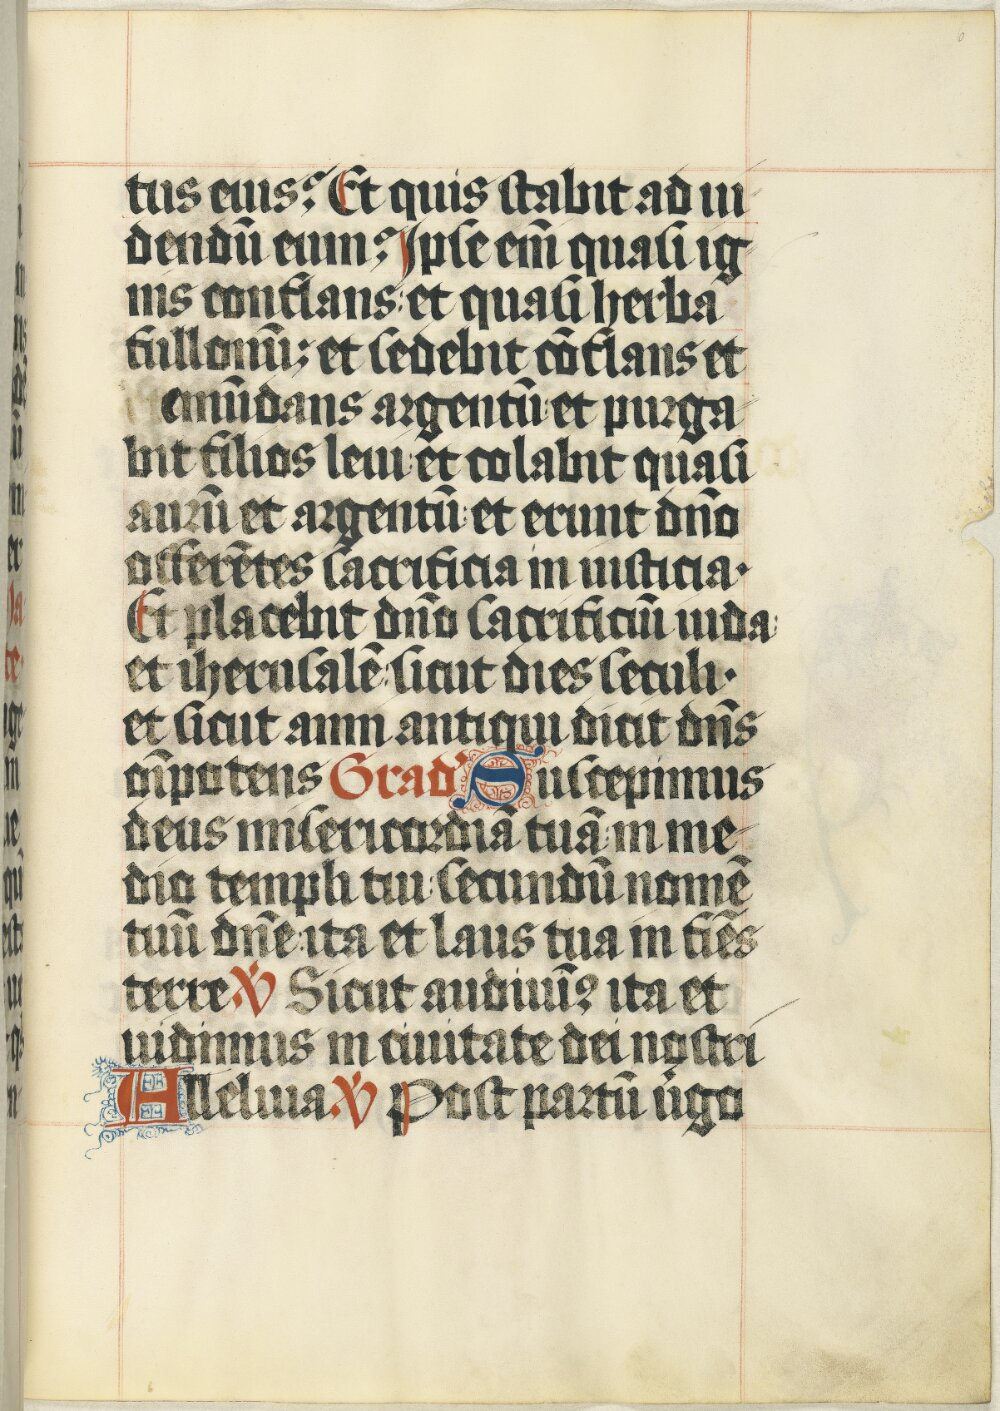 tus eius? Et quis stabit ad ui
dendū eum? Ipse em̄ quasi ig
nis conflans: et quasi herba
fullonum; et sedebit cōflans et
emūdans argentū: et purga
bit filios leui: et colabit quasi
aurū et argentū: et erunt dn̄o
offerētes sacrificia in iusticia·
Et placebit dn̄o sacrificiū iuda:
et iherusalē: sicut dies seculi·
et sicut anni antiqui dicit dn̄s
om̄potens Grad' Suscepimus
deus misericordiā tuā: in me
dio templi tui: secundū nomē
tuū dn̄e: ita et laus tua in fiēs
terre ℣ Sicut audiuiꝰ ita et
uidimus in ciuitate dei nostri
Alleluia ℣ Post partū ūgo
6